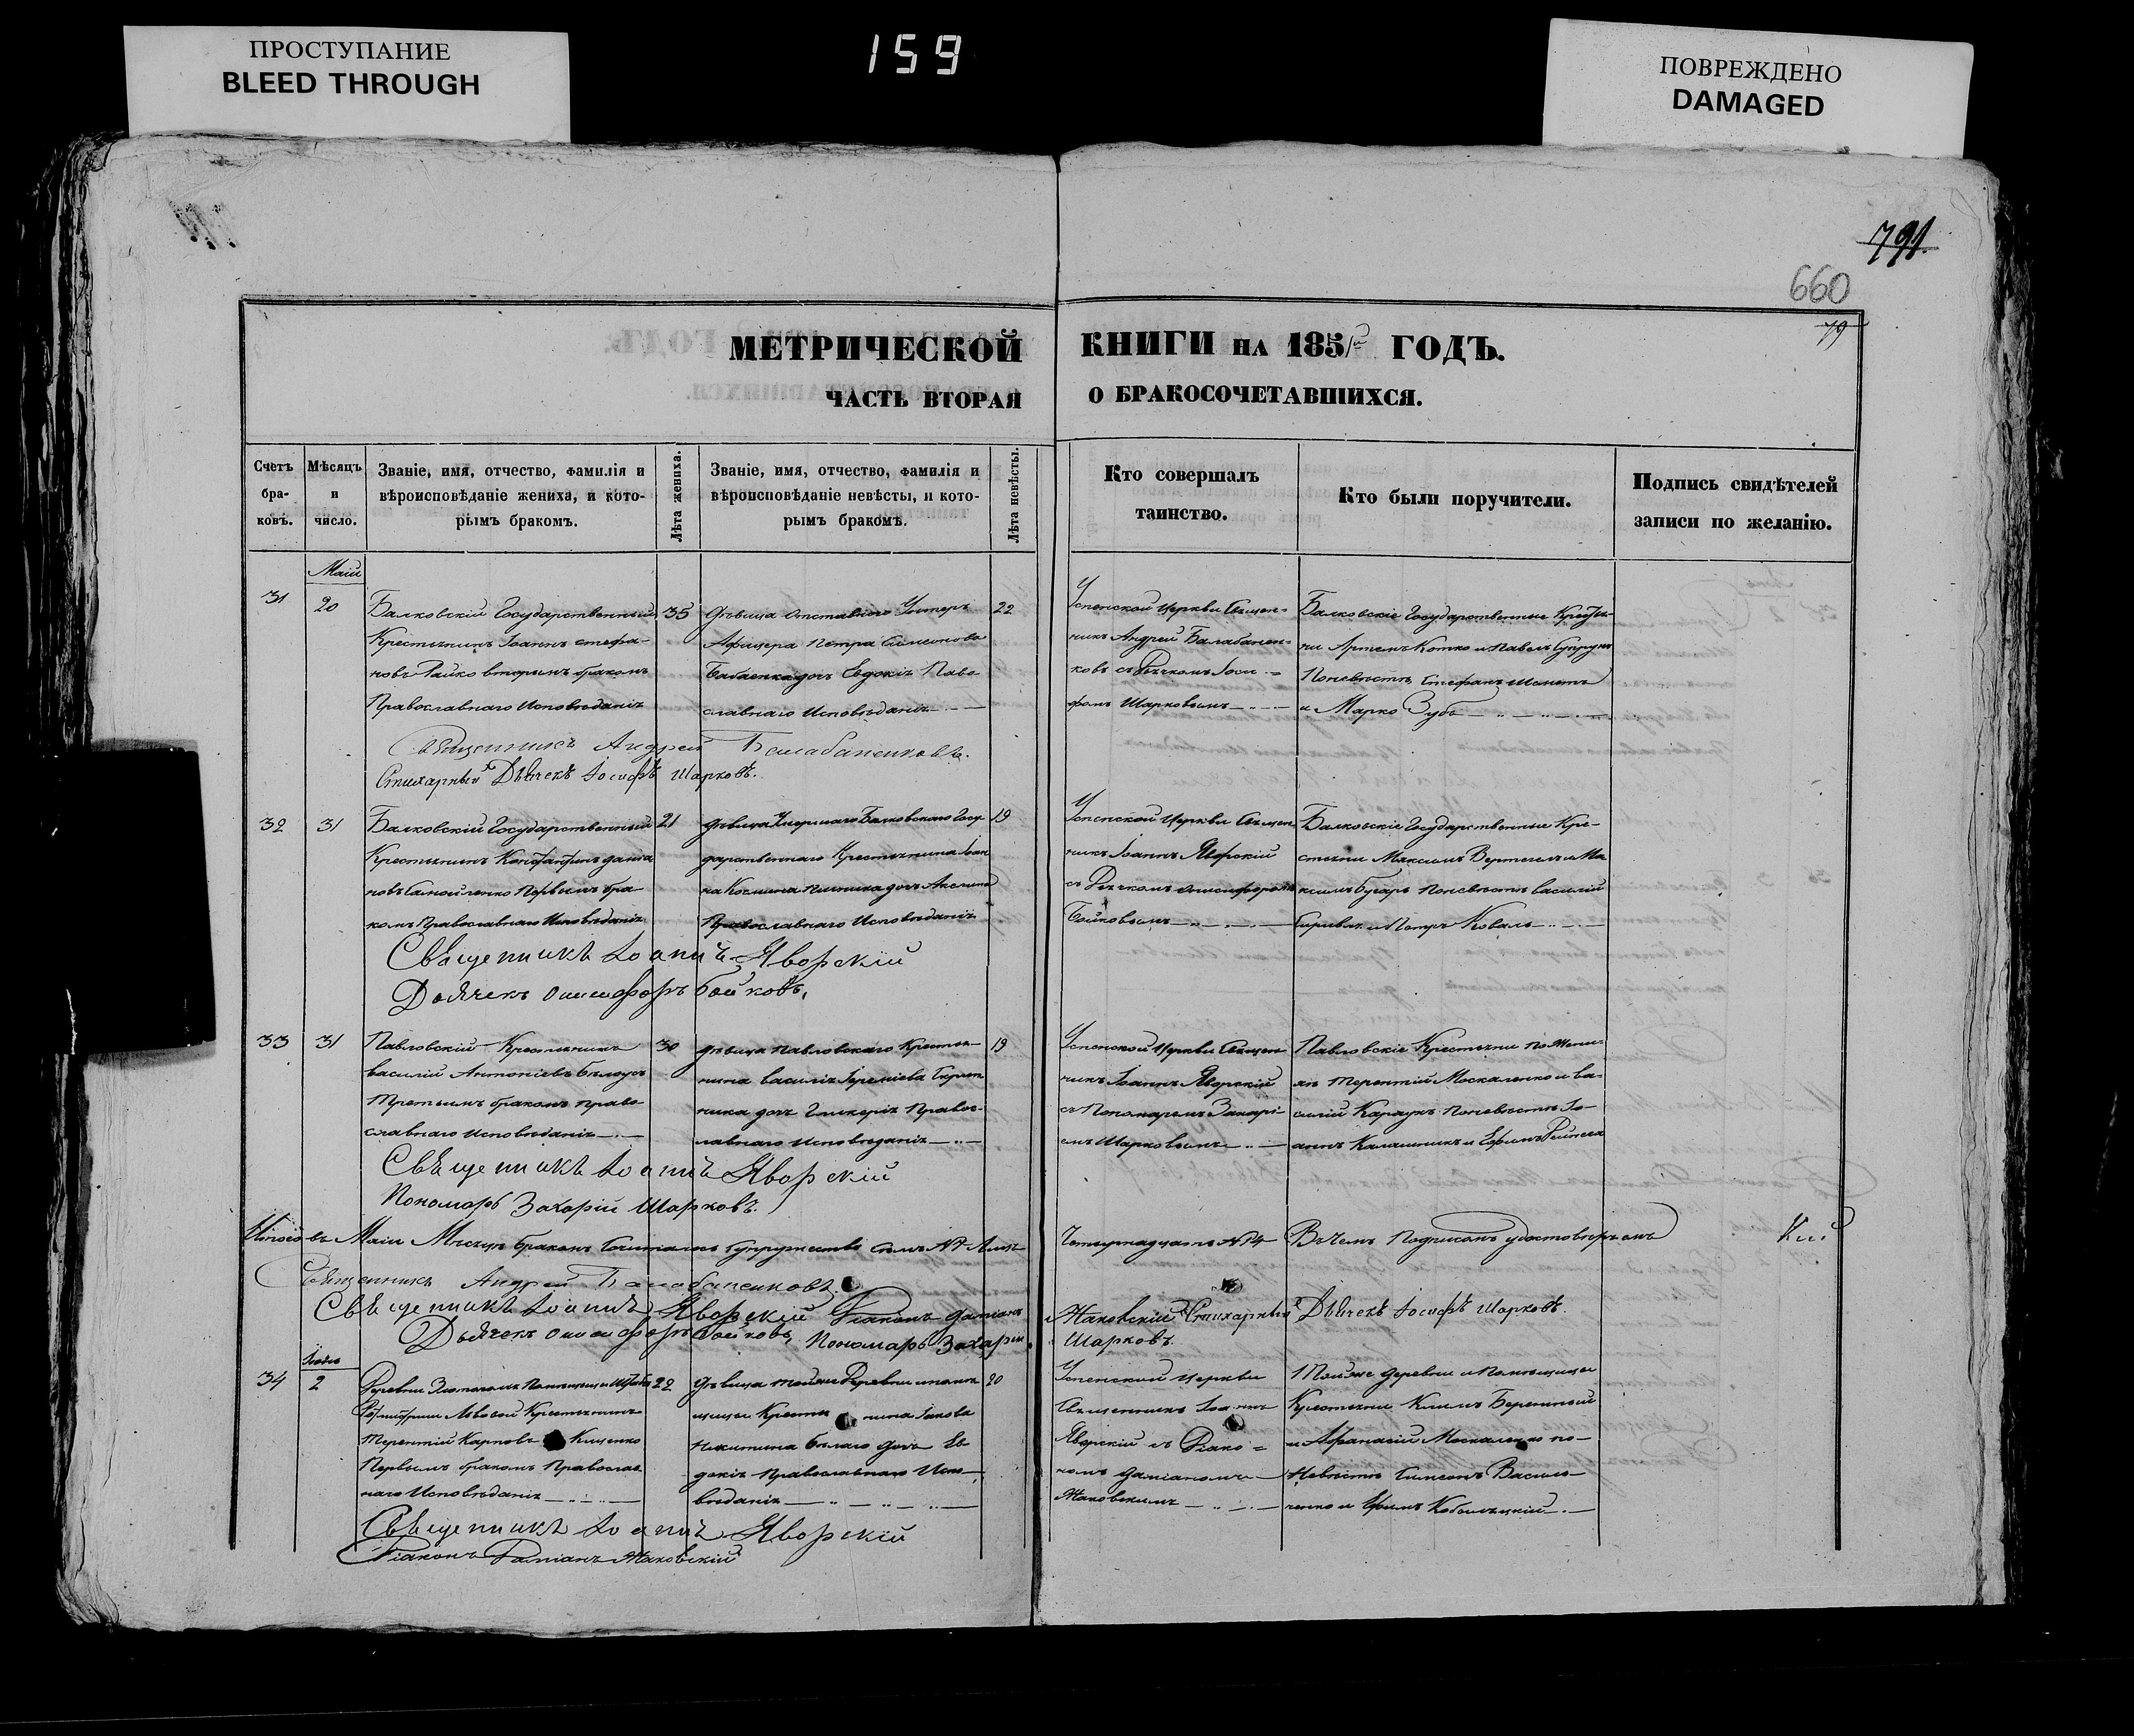 ПРОСТУПАНИЕ
BLEED THROUGH
159
ПОВРЕЖДЕНО
DAMAGED
791.
660
79
МЕТРИЧЕСКОЙ КНИГИ НА 1851й ГОДЪ.
ЧАСТЬ ВТОРАЯ О БРАКОСОЧЕТАВШИХСЯ.
Счетъ бра-ковъ.
Мѣсяцъ и число.
Званіе, имя, отчество, фамилія и
вѣроисповѣданіе жениха, и кото-
рымъ бракомъ.
Лѣта жениха.
Званіе, имя, отчество, фамилія и
вѣроисповѣданіе невѣсты, и кото-
рымъ бракомъ.
Лѣта невѣсты.
Кто совершалъ
таинство.
Кто были поручители.
Подпись свидѣтелей
записи по желанію.
Маій
31
20
Балковскій Государственный
Крестьянинъ Іоаннъ Стефа-
новъ Гайко вторымъ бракомъ
Православнаго Исповѣданія
35
Дѣвица Отставнаго Унтеръ
Афицера Петра Симеонова
дочь Евдокія Паво
славнаго Исповѣданія
22
Успенской Церкви Священ=
никъ Андрей Балабанен=
ковъ съ Дьячкомъ Іоси=
фомъ Шарковымъ
Балковскіе Государственные Крестья-
ни Артемъ Котко и Павелъ Супрунъ
Поневѣстѣ Стефанъ
и Марко Зубъ
Священникъ Андрей Балабаненковъ.
Стихарный Дьячекъ Іосифъ Шарковъ.
32
31
Балковскій Государственный
Крестьянинъ Константинъ
новъ Самойленко Первымъ бра
комъ Православнаго Исповѣданія
21
Дѣвица Умершаго Балковскаго Госу-
дарственнаго Крестьянина Іоан
на Космина дочь Акелина
Православнаго Исповѣданія
19
Успенской Церкви Священ
никъ Іоаннъ Яворскій
съ Дьячкомъ Онисифоромъ
Бойковымъ
Балковскіе Государственные Кре-
стьяни Максимъ и Ма
ксимъ Поневѣстѣ Василій
и Петръ Коваль
Священникъ Іоаннъ Яворскій
Дьячекъ Онисифоръ Бойковъ.
33
31
Павловскій Крестьянинъ
Василій Антоніевъ Бѣлоусъ
Третьимъ бракомъ право
славнаго исповѣданія
30
Дѣвица Павловскаго Крестья-
нина Василія Іереміева
ника дочь Гликерія Правос-
лавнаго Исповѣданія
19
Успенской Церкви Священ
никъ Іоаннъ Яворскій
съ Пономаремъ Захарі-
емъ Шарковымъ
Павловскіе Крестьяни по Жени-
хѣ Терентій Москаленко и Ва-
силій Караукъ Поневѣстѣ Іо-
аннъ Калашникъ и Ефимъ
Священникъ Іоаннъ Яворскій
Пономарь Захарій Шарковъ.
Итого въ Маіи Мѣсяцѣ бракомъ Супружества
Четырнадцать №14 Въ чемъ Подписомъ удостовѣряемъ
Священникъ Андрей Балабаненковъ.
Священникъ Іоаннъ Яворскій Діаконъ Даміанъ
Жаковскій Стихарный Дьячекъ Іосифъ Шарковъ.
Дьячекъ Онисифоръ Бойковъ, Пономарь Захарій
Шарковъ.
34
2
Терентій Карповъ Кищенко
Первымъ бракомъ Православ
наго Исповѣданія
22
Дѣвица тойже Деревни и помѣ
щицы Крестьянина Іакова
Никитина Бѣлаго дочь Ев
докія Православнаго Испо-
вѣданія
20
Успенской Церкви
Священникъ Іоаннъ
Яворскій съ Діако=
номъ Даміаномъ
Жаковскимъ
Тойже деревни и Помѣщицы
Крестьяни Климъ
и Афанасій Москаленко по-
Невѣстѣ Симеонъ Василь-
ченко и Ефимъ
Священникъ Іоаннъ Яворскій
Діаконъ Даміанъ Жаковскій